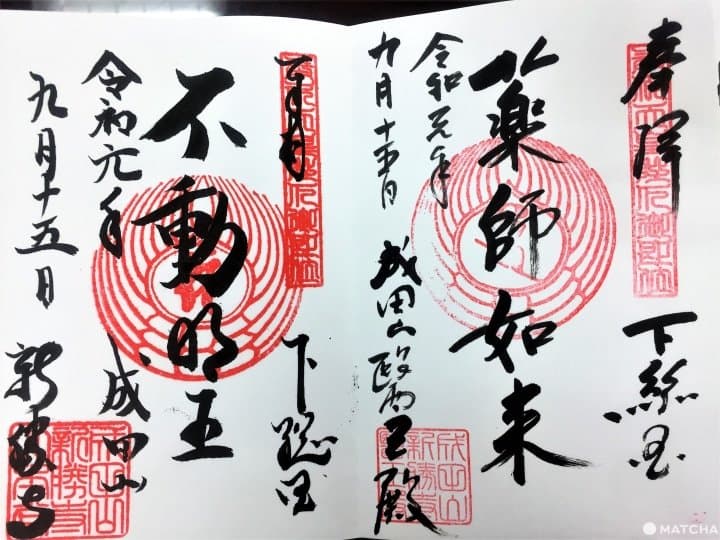 奉拝
下総国
薬師如来
令和元年
九月十五日
成田山醫王殿
成田山
新勝寺
奉拝
下総国
不動明王
令和元年
九月十五日
成田山
新勝寺
成田山
新勝寺
MATCHA